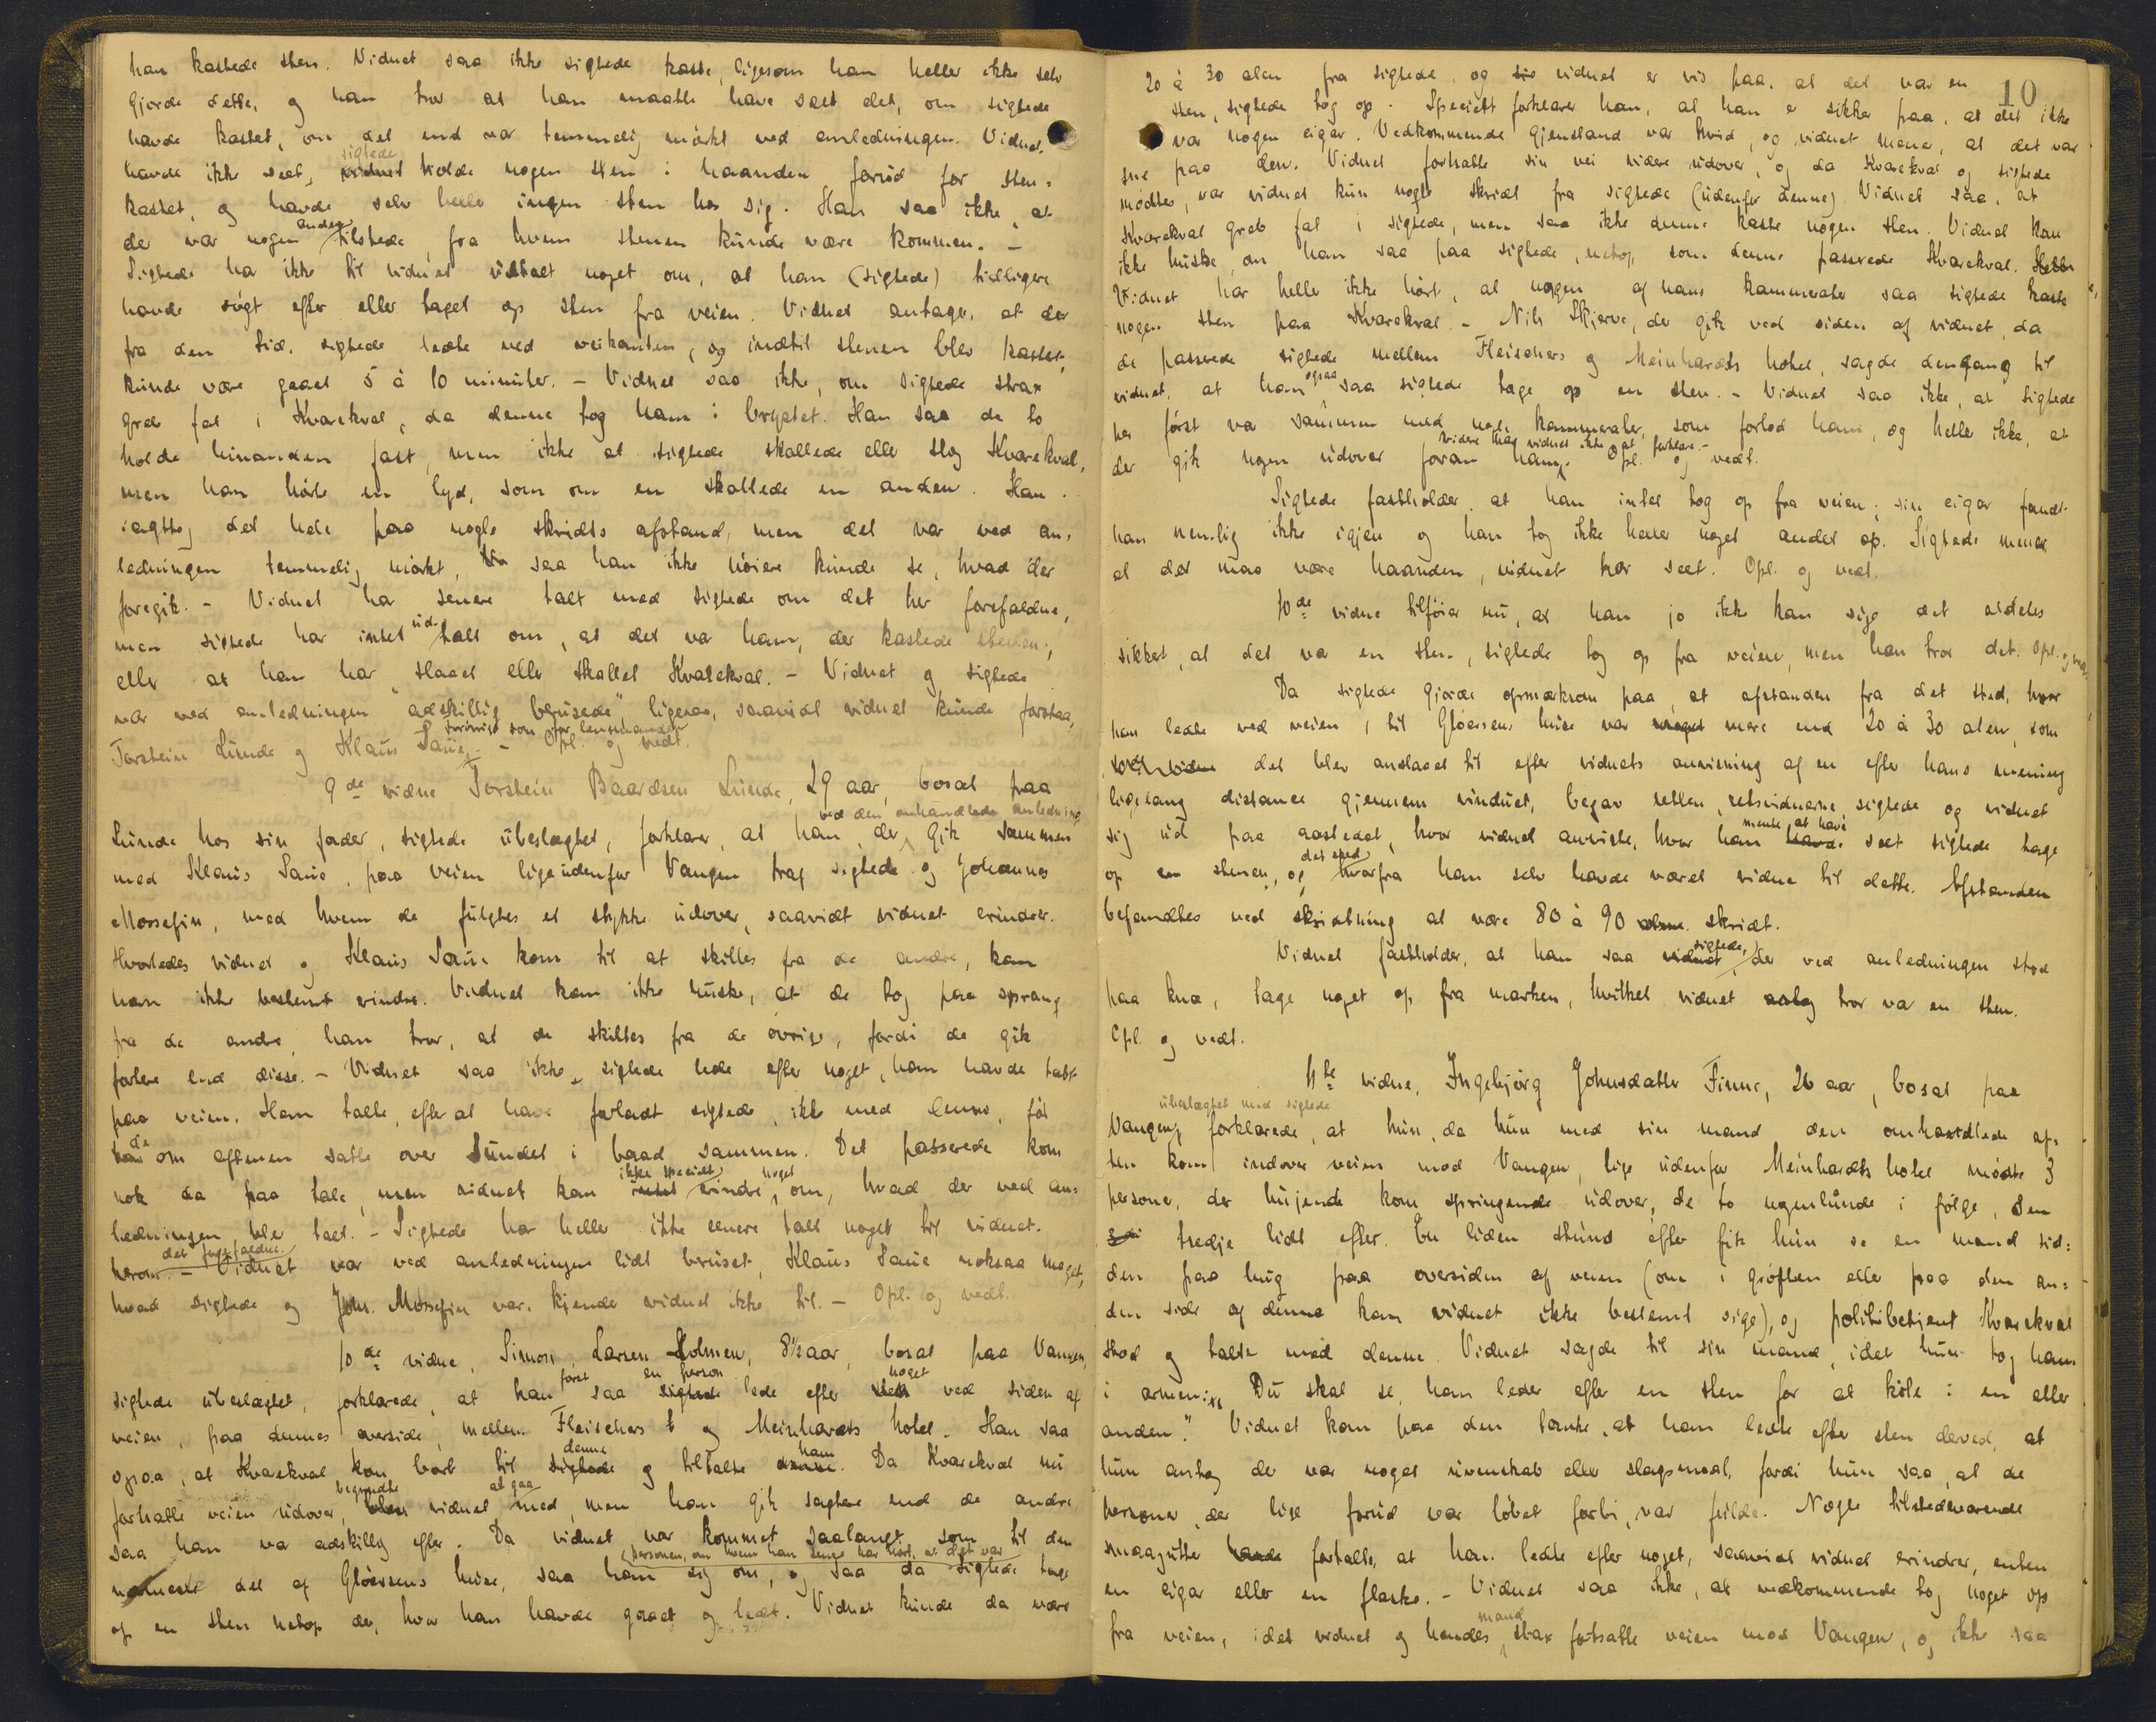 han kastede sten. Vidnet saa ikke sigtede kaste, ligesom han heller ikke selv
gjorde dette, og han tror at han maatte have seet det, om sigtede
havde kastet, om det end var temmelig mørkt ved anledningen. Vidnet
havde ikke seet, sigtede holde nogen sten i haanden forud for sten-
kastet, og havde selv heller ingen sten hos sig. Han saa ikke, at
der var nogen anden tilstede, fra hvem stenen kunde være kommen. –
Sigtede har ikke til vidnet udtalt noget om, at han (sigtede) tidligere
havde søgt efter eller taget op sten fra veien. Vidnet antager, at der
fra den tid, sigtede ledte ved veikanten, og indtil stenen blev kastet,
kunde være gaaet 5 à 10 minuter. – Vidnet saa ikke, om sigtede strax
greb fat i Kvarekval, da denne tog ham i brystet. Han saa de to
holde hinanden fast, men ikke at sigtede skallede eller slog Kvarekval,
men han hørte en lyd, som om en skallede en anden. Han
iagttog det hele paa nogle skridts afstand, men det var ved an-
ledningen temmelig mørkt, saa han ikke nøiere kunde se, hvad der
foregik. – Vidnet har senere talt med sigtede om det her forefaldne,
men sigtede har intet udtalt om, at det var ham, der kastede stenen,
eller at han har slaaet eller skallet Kvarekval. – Vidnet og sigtede
var ved anledningen "adskillig berusede" ligesaa, saavidt vidnet kunde forstaa,
Torstein Lunde og Klaus Saue. forøvrigt som for lensmanden – Opl. og vedt.
9de vidne Torstein Baardsen Lunde, 29 aar, bosat paa
Lunde hos sin fader, sigtede ubeslægtet, forklarer, at han, der ved den omhandlede anledning gik sammen
med Klaus Saue, paa veien lige udenfor Vangen traf sigtede og Johannes
Mossefin, med hvem de fulgtes et stykke udover, saavidt vidnet erindrer.
Hvorledes vidnet og Klaus Saue kom til at skilles fra de andre, kan
han ikke bestemt erindre. Vidnet kan ikke huske, at de tog paa sprang
fra de andre, han tror, at de skiltes fra de øvrige, fordi de gik
fortere end disse. – Vidnet saa ikke, sigtede lede efter noget, han havde tabt
paa veien. Han talte, efter at have forladt sigtede, ikke med denne, før
de om aftenen satte over Sundet i baad sammen. Det passerede kom
nok da paa tale, men vidnet kan ikke specielt erindre noget om, hvad der ved an-
ledningen blev talt. – Sigtede har heller ikke senere talt noget til vidnet.
det forefaldne. – Vidnet var ved anledningen lidt beruset, Klaus Saue noksaa meget,
hvad sigtede og Johs. Mossefin var, kjender vidnet ikke til. – Opl. og vedt.
10de vidne, Simon Larsen Holmen, 8½ aar, bosat paa Vangen,
sigtede ubeslægtet, forklarede, at han først saa en person lede efter noget ved siden af
veien, paa dennes overside, mellem Fleischers og Meinhardts hotel. Han saa
ogsaa, at Kvarekval kom bort til denne og tiltalte ham. Da Kvarekval nu
fortsatte veien udover, begyndte vidnet at gaa med, men han gik sagtere end de andre,
saa han var adskillig efter. Da vidnet var kommet saalangt som til den
nærmeste del af Gloersens hus, saa han sig om, og saa da personen, om hvem han senere har hørt, at det var sigtede tage
op en sten netop der, hvor han havde gaaet og ledt. Vidnet kunde da være
10
20 à 30 alen fra sigtede, og vidnet er vis paa, at det var en
sten, sigtede tog op. Specielt forklarer han, at han er sikker paa, at det ikke
var nogen cigar. Vedkommende gjenstand var hvid, og vidnet mener, at det var
sne paa den. Vidnet fortsatte sin vei videre udover, og da Kvarekval og sigtede
mødtes, var vidnet kun nogle skridt fra sigtede (udenfor denne). Vidnet saa, at
Kvarekval greb fat i sigtede, men saa ikke denne kaste nogen sten. Vidnet kan
ikke huske, om han saa paa sigtede, netop som denne passerede Kvarekval.
Vidnet har heller ikke hørt, at nogen af hans kammerater saa sigtede kaste
nogen sten paa Kvarekval. – Nils Skjerve, der gik ved siden af vidnet, da
de passerede sigtede mellem Fleischers og Meinhardts hotel, sagde dengang til
vidnet, at han ogsaa saa sigtede tage op en sten. – Vidnet saa ikke, at sigtede
her først var sammen med nogle kammerater, som forlod ham, og heller ikke, at
der gik nogen udover foran ham. Videre har vidnet ikke at forklare. – Opl. og vedt.
Sigtede fastholder, at han intet tog op fra veien; sin cigar fandt
han nemlig ikke igjen og han tog ikke heller noget andet op. Sigtede mener
at det maa være haanden, vidnet har seet. Opl. og vedt.
10de vidne tilføier nu, at han jo ikke kan sige det aldeles
sikkert, at det var en sten, sigtede tog op fra veien, men han tror det. Opl. og vedt.
Da sigtede gjorde opmærksom paa, at afstanden fra det sted, hvor
han ledte ved veien, til Gloersens huse var mere end 20 à 30 alen, som
det blev anslaaet til efter vidnets anvisning af en efter hans mening
ligelang distance gjennem vinduet, begav retten, retsvidnerne, sigtede og vidnet
sig ud paa aastedet, hvor vidnet anviste, hvor han mente at have seet sigtede tage
op stenen, og det sted hvorfra han selv havde været vidne til dette. Afstanden
befandtes ved skridtning at være 80 à 90 skridt.
Vidnet fastholder, at han saa sigtede, der ved anledningen stod
paa knæ, tage noget op fra marken, hvilket vidnet tror var en sten.
Opl. og vedt.
11te vidne, Ingebjørg Johnsdatter Finne, 26 aar, bosat paa
Vangen, ubeslægtet med sigtede forklarede, at hun, da hun med sin mand den omhandlede af-
ten kom indover veien mod Vangen, lige udenfor Meinhardts hotel mødte 3
persone, der hujende kom springende udover, de to nogenlunde i følge, den
tredje lidt efter. En liden stund efter fik hun se en mand sid-
den paa hug paa oversiden af veien (om i grøften eller paa den an-
den side af denne kan vidnet ikke bestemt sige), og politibetjent Kvarekval
stod og talte med denne. Vidnet sagde til sin mand, idet hun tog ham
i armen: „Du skal se, han leder efter en sten for at kile i en eller
anden". Vidnet kom paa den tanke, at han ledte efter sten derved, at
hun antog der var noget uvenskab eller slagsmaal, fordi hun saa, at de
personer, der lige forud var løbet forbi, var fulde. Nogle tilstedeværende
smaagutter fortalte, at han ledte efter noget, saavidt vidnet erindrer, enten
en cigar eller en flaske. – Vidnet saa ikke, at vedkommende tog noget op
fra veien, idet vidnet og hendes mand strax fortsatte veien mod Vangen, og ikke saa